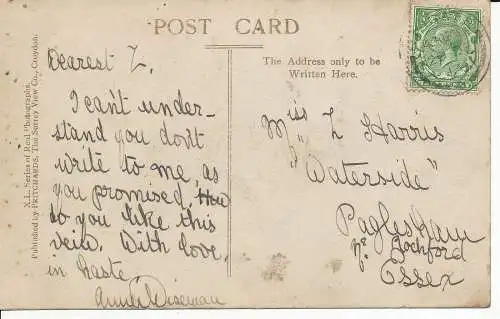 POST CARD
The Address only to be
Written Here.
X.L. Series of Real Photographs.
Published by PRITCHARDS, The Surrey View Co., Croydon.
Dearest L.
I can't under-
stand you don't
write to me as
you promised. How
do you like this
view. With love,
in haste
Annie Wiseman
Miss L Harris
"Waterside"
Paglesham
nr Rochford
Essex